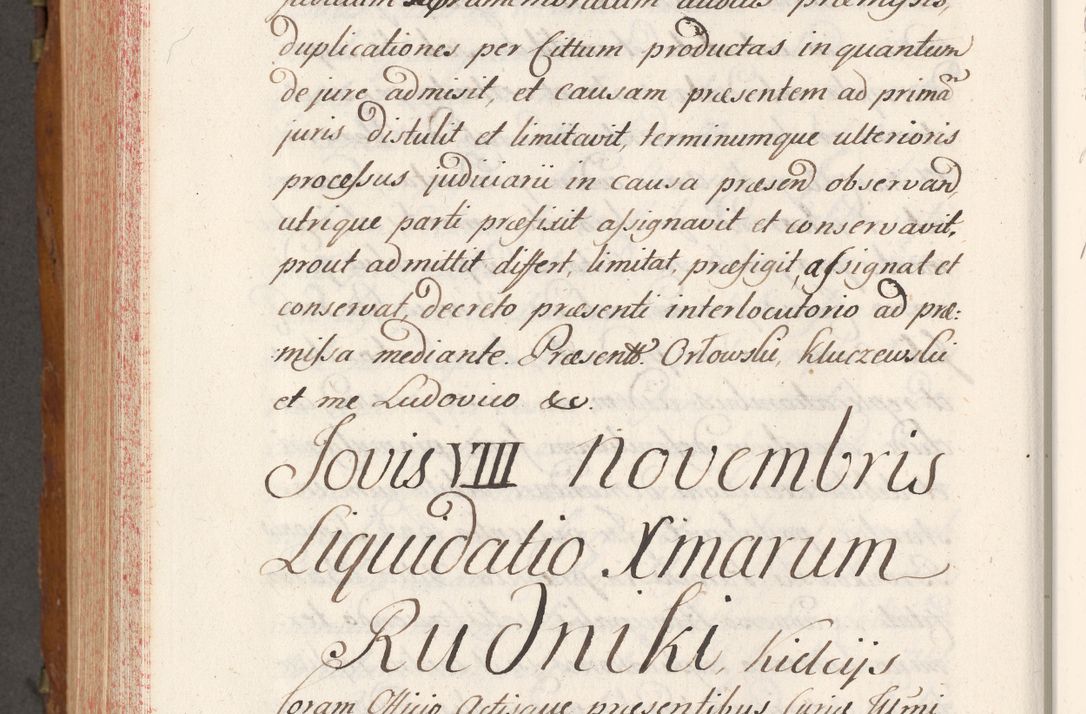 duplicationes per Cittum productas in quantum
de jure admisit, et causam præsentem ad primã
juris distulit et limitavit, terminumque ulterioris
processus judiciarii in causa præsend observand
utrique parti præfixit assignavit et conservavit,
prout admittit differt, limitat, præfigit, assignat et
conservat, decreto præsenti interlocutorio ad præ:
missa mediante. Præsentt. Orłowski, Kluczewski
et me Ludovico &c.
Jovis VIII Novembris
Liquidatio Xmarum
Rudniki, Kielcijs
Coram Officio Actisque præsentibus Curiæ Illmi